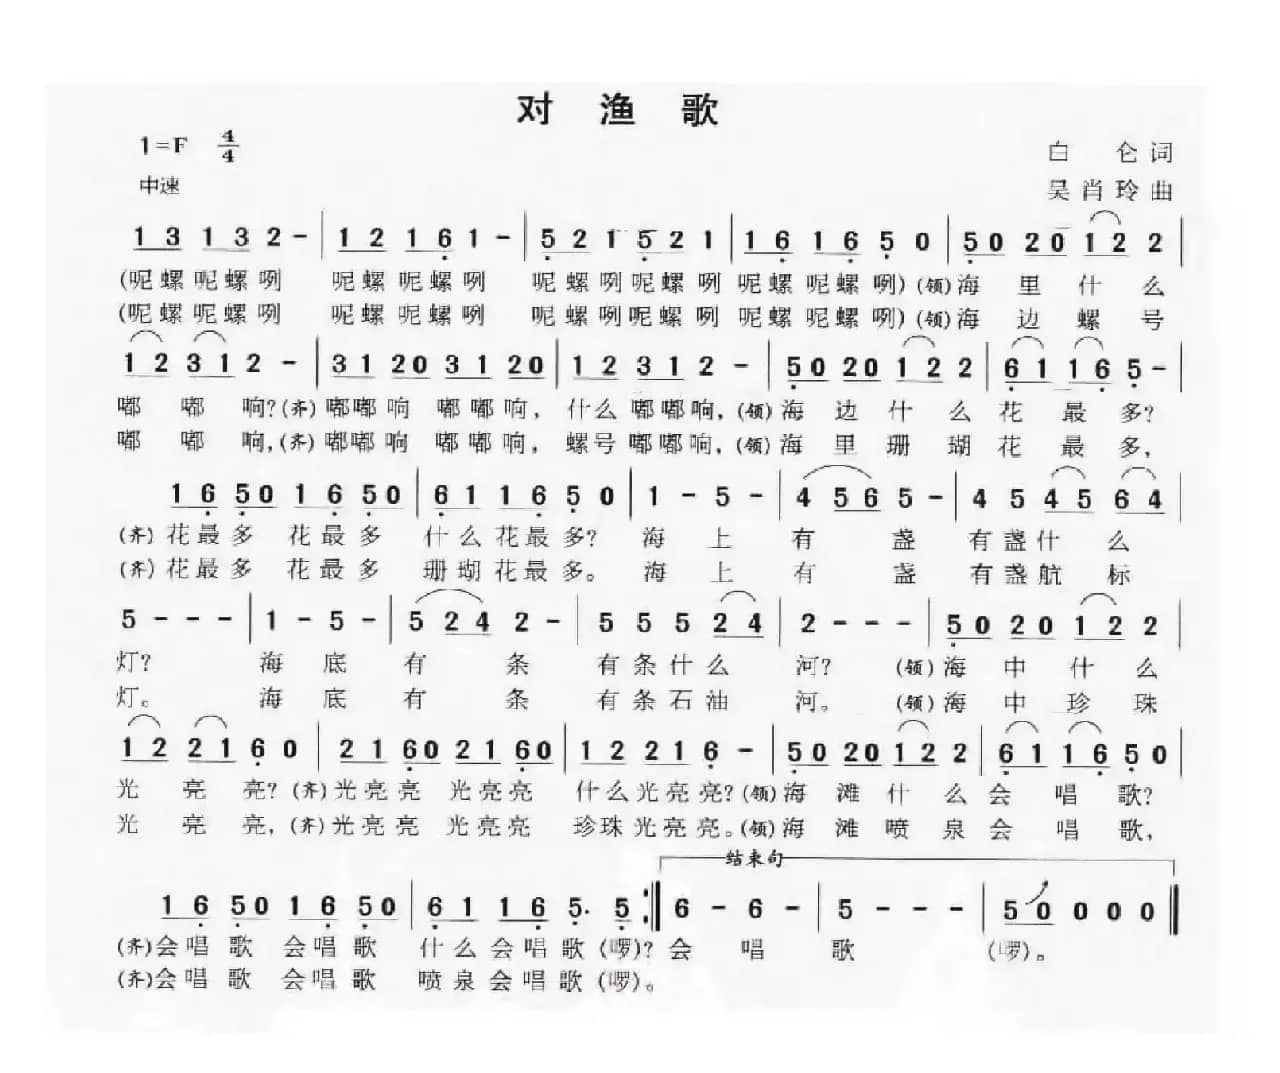 对 渔 歌
1=F 4/4
白 仑 词
中速
吴肖玲 曲
1 3 1 3 2 - | 1 2 1 6 1 - | 5 2 1 5 2 1 | 1 6 1 6 5 0 | 5 0 2 0 1 2 2 |
(呢螺呢螺咧 呢螺呢螺咧 呢螺咧呢螺咧 呢螺呢螺咧)(领)海 里 什 么
(呢螺呢螺咧 呢螺呢螺咧 呢螺咧呢螺咧 呢螺呢螺咧)(领)海 边 螺 号
1 2 3 1 2 - | 3 1 2 0 3 1 2 0 | 1 2 3 1 2 - | 5 0 2 0 1 2 2 | 6 1 1 6 5 - |
嘟 嘟 响?(齐)嘟嘟响 嘟嘟响, 什么嘟嘟响,(领)海 边 什 么 花 最 多?
嘟 嘟 响,(齐)嘟嘟响 嘟嘟响, 螺号嘟嘟响,(领)海 里 珊 瑚 花 最 多,
1 6 5 0 1 6 5 0 | 6 1 1 6 5 0 | 1 - 5 - | 4 5 6 5 - | 4 5 4 5 6 4 |
(齐)花最多 花最多 什么花最多? 海 上 有 盏 有盏什 么
(齐)花最多 花最多 珊瑚花最多。 海 上 有 盏 有盏航 标
5 - - - | 1 - 5 - | 5 2 4 2 - | 5 5 5 2 4 | 2 - - - | 5 0 2 0 1 2 2 |
灯? 海 底 有 条 有条什么 河? (领)海 中 什 么
灯。 海 底 有 条 有条石油 河。 (领)海 中 珍 珠
1 2 2 1 6 0 | 2 1 6 0 2 1 6 0 | 1 2 2 1 6 - | 5 0 2 0 1 2 2 | 6 1 1 6 5 0 |
光 亮 亮?(齐)光亮亮 光亮亮 什么光亮亮?(领)海 滩 什 么 会 唱 歌?
光 亮 亮,(齐)光亮亮 光亮亮 珍珠光亮亮。(领)海 滩 喷 泉 会 唱 歌,
结束句
1 6 5 0 1 6 5 0 | 6 1 1 6 5. 5 :| 6 - 6 - | 5 - - - | 5 0 0 0 0 ‖
(齐)会唱歌 会唱歌 什么会唱歌(啰)? 会 唱 歌 (啰)。
(齐)会唱歌 会唱歌 喷泉会唱歌(啰)。